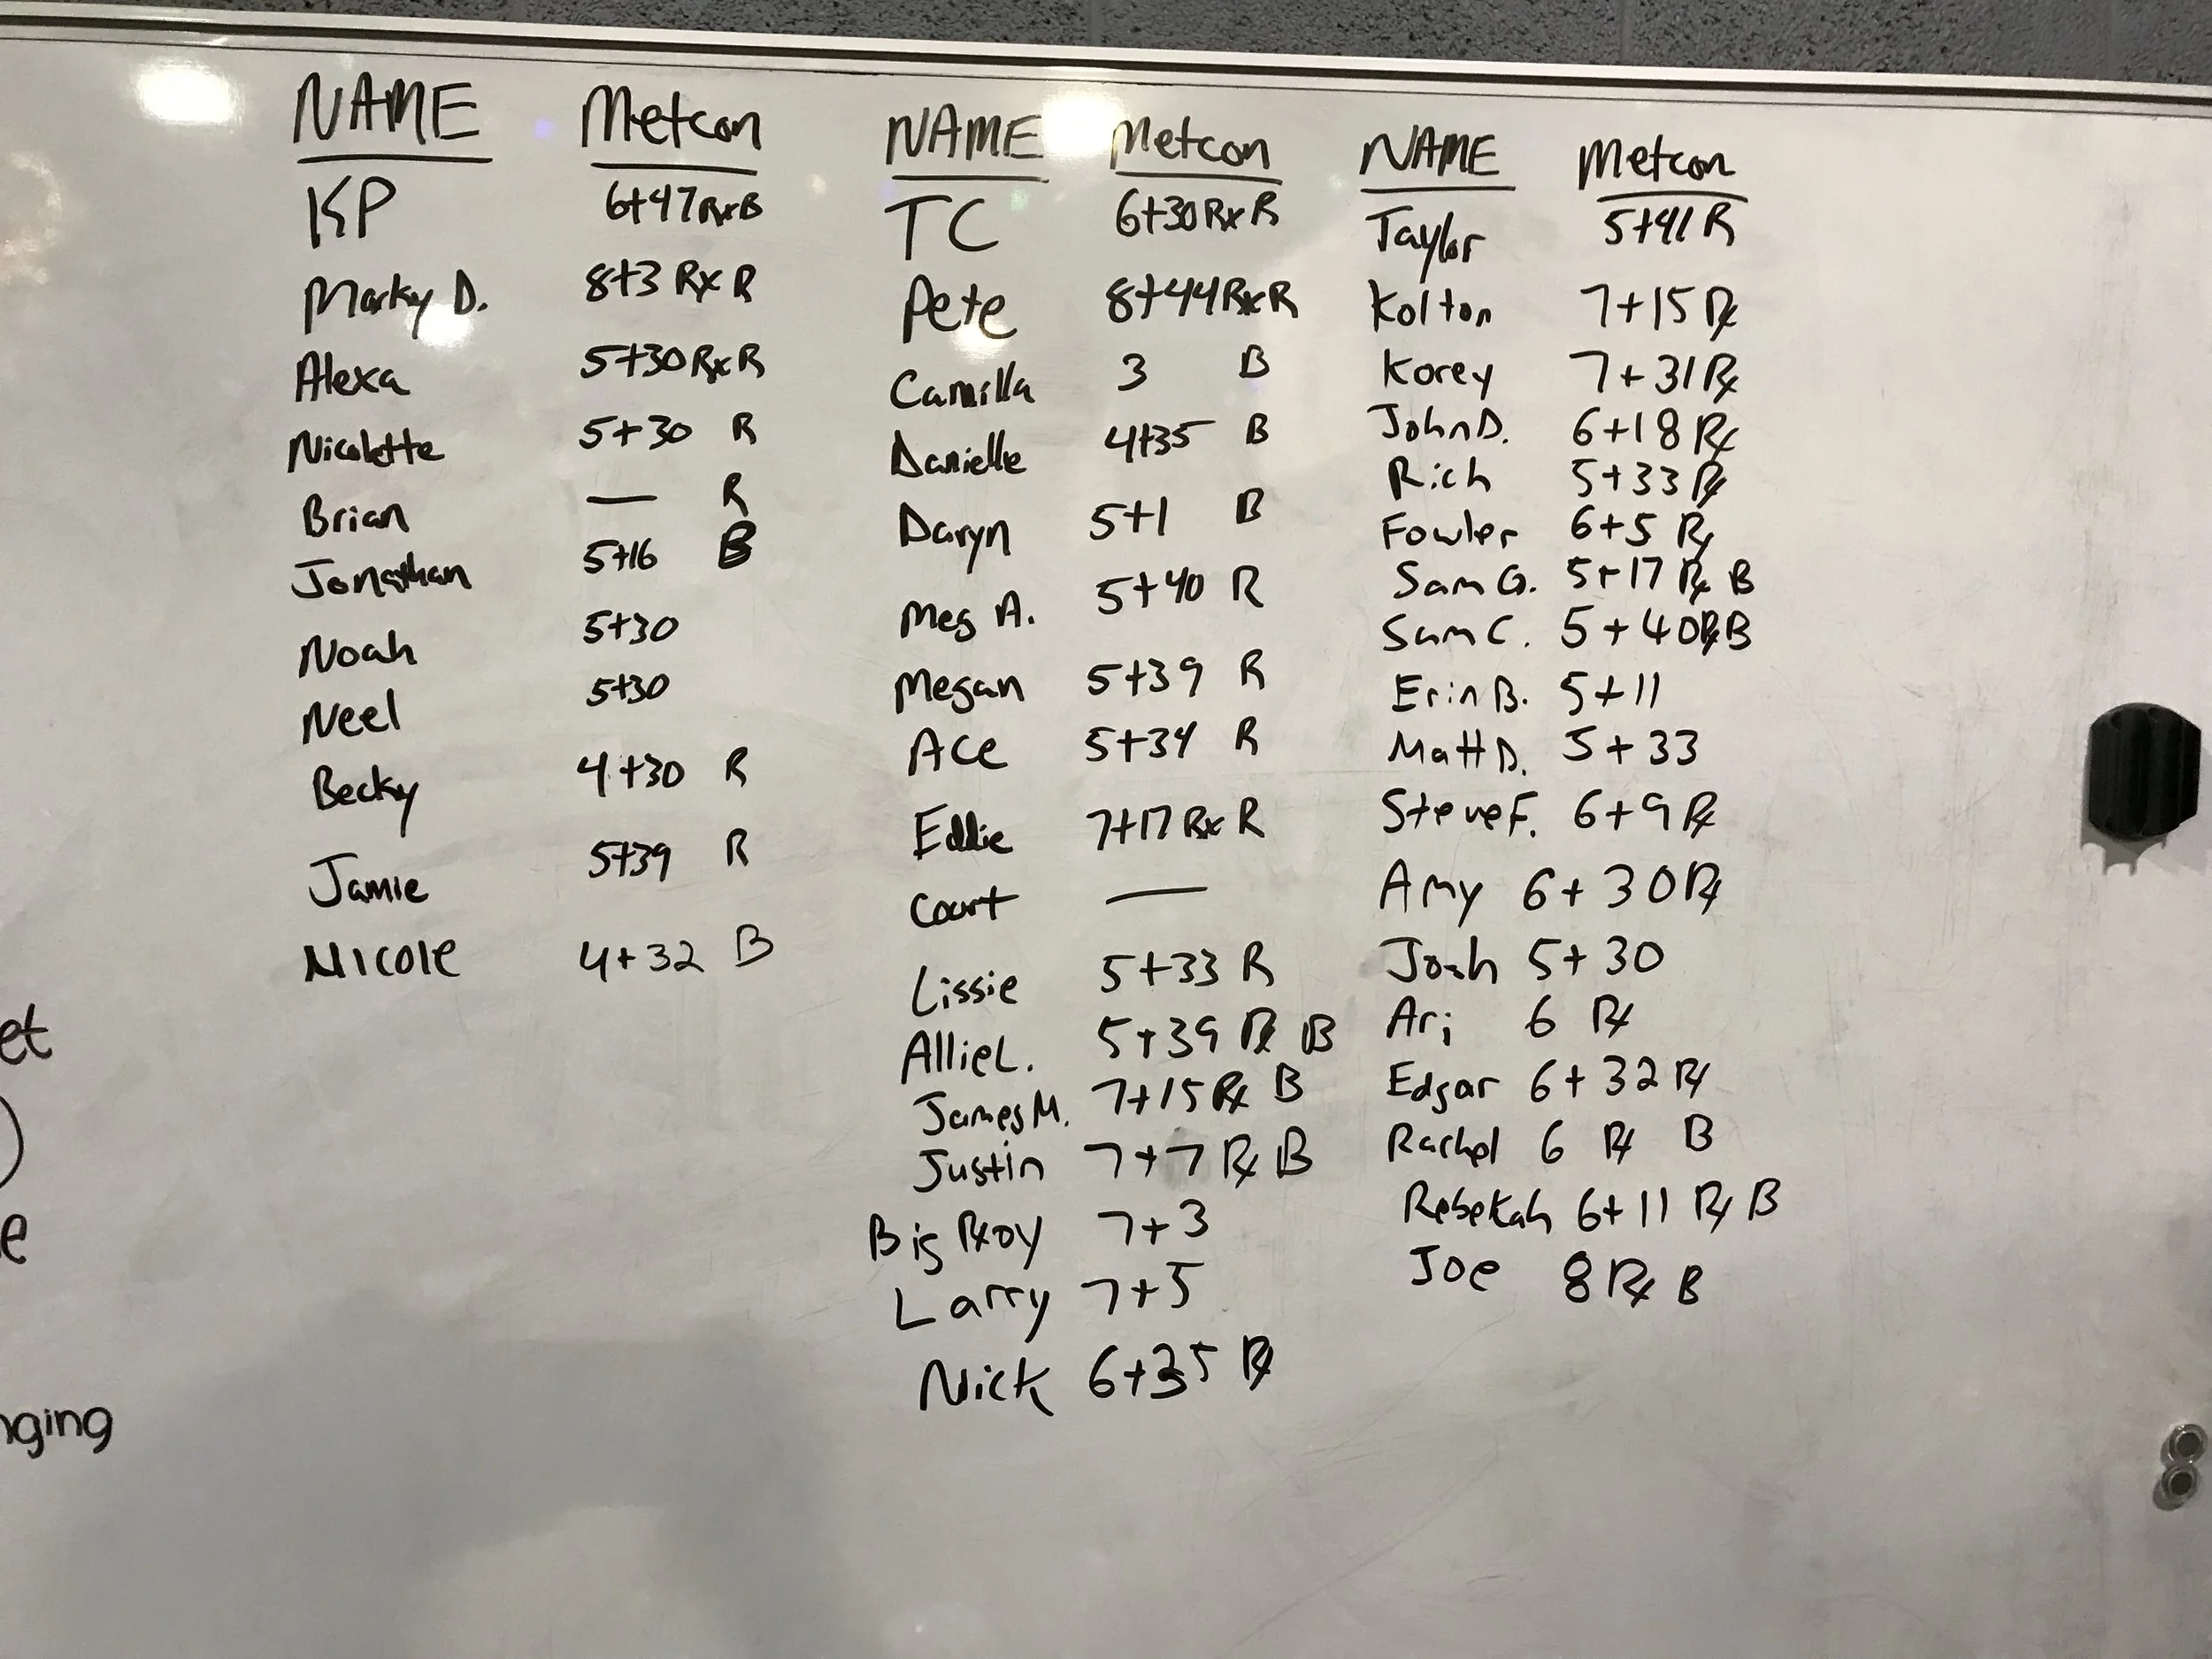 NAME Metcon
KP 6+47 Rx B
Marky D. 8+3 Rx R
Alexa 5+30 Rx R
Nicolette 5+30 R
Brian — R
Jonathan 5+16 B
Noah 5+30
Neel 5+30
Becky 4+30 R
Jamie 5+39 R
Nicole 4+32 B
et
e
nging
NAME Metcon
TC 6+30 Rx R
Pete 8+44 Rx R
Camilla 3 B
Danielle 4+35 B
Daryn 5+1 B
Meg A. 5+40 R
Megan 5+39 R
Ace 5+34 R
Eddie 7+17 Rx R
Court —
Lissie 5+33 R
Allie L. 5+39 Rx B
James M. 7+15 Rx B
Justin 7+7 Rx B
Big Rxoy 7+3
Larry 7+5
Nick 6+35 Rx
NAME Metcon
Taylor 5+41 R
Kolton 7+15 Rx
Korey 7+31 Rx
John D. 6+18 Rx
Rich 5+33 Rx
Fowler 6+5 Rx
Sam G. 5+17 Rx B
Sam C. 5+40 Rx B
Erin B. 5+11
Matt D. 5+33
Steve F. 6+9 Rx
Amy 6+30 Rx
Josh 5+30
Ari 6 Rx
Edgar 6+32 Rx
Rachel 6 Rx B
Rebekah 6+11 Rx B
Joe 8 Rx B